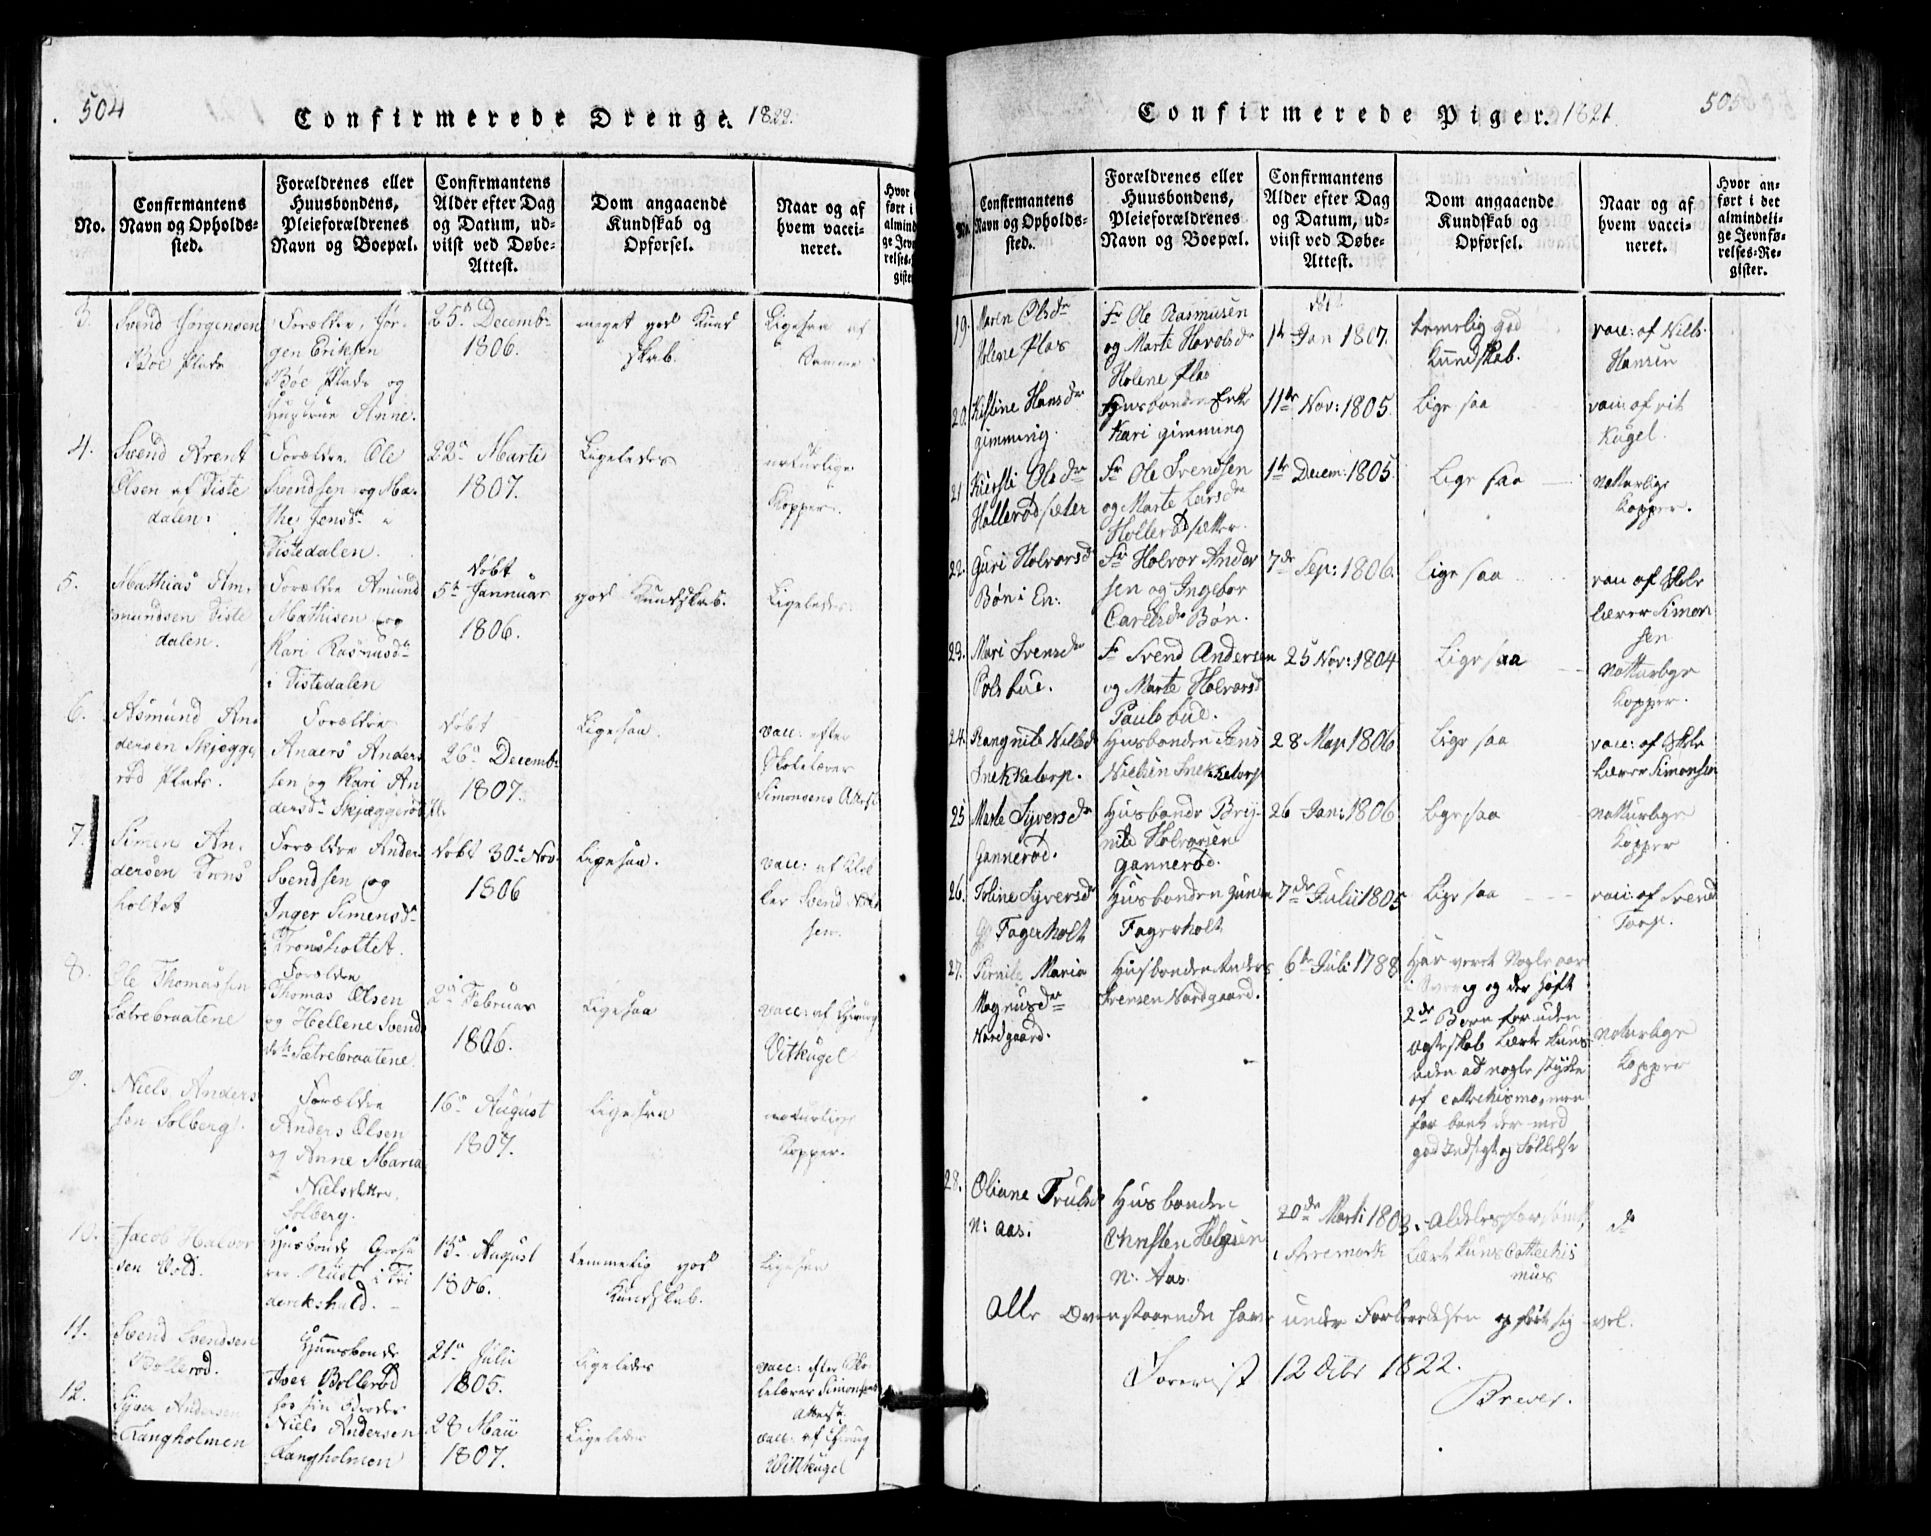 504
Confirmerede Drenge. 1822.
No.
Confirmantens
Navn og Opholds-
sted.
Forældrenes eller
Huusbondens,
Pleieforældrenes
Navn og Boepæl.
Confirmantens
Alder efter Dag
og Datum, ud-
viist ved Døbe-
Attest.
Dom angaaende
Kundskab og
Opførsel.
Naar og af
hvem vacci-
neret.
3.
Svend Jørgensen
Bøe Plads
Forældre, Jør-
gen Eriksen
Bøe Plads og
Hustrue Anne.
25de Decembr
1806.
meget god Kund
skab.
Ligesaa af
Samme
4.
Svend Arent
Olsen af Tiste
dalen.
Forældre Ole
Svendsen og Ma-
the Jensdr i
Tistedalen.
22de Marti
1807.
Ligeledes
naturlige
Kopper.
5.
Mathias Am-
mundsen Tiste
dalen.
Forældre Amund
Mathisen og
Kari Rasmusdr
i Tistedalen
døbt
5te Januar
1806.
god Kundskab.
Ligeledes.
6.
Asmund An-
dersen Skjægge
rød Plads.
Forældre
Anders Anders
sen og Kari An
dersdr Skjæggerød Pl.
døbt
26de Decembr
1807.
Ligesaa.
vacc: efter
Skolelærer
Simonsens Attest
7.
Simen An-
dersen Trons
holtet
Forældre Anders
Svendsen og
Inger Simensdr
Tronsholtet.
døbt 30te Nov.
1806
Ligesaa.
vacc: af Klok
ker Svend Niel
sen.
8.
Ole Thomassen
Sætrebraatene
Forældre
Thomas Olsen
og Hellene Svends
dtr Sætrebraatene.
2de Februar
1806.
Ligesaa
vacc: af Chirurg
Vitkugel
9.
Niels Anders
sen Solberg.
Forældre
Anders Olsen
og Anne Maria
Nielsdatter.
Solberg.
16de August
1807.
Ligesaa
naturlige
Kopper.
10.
Jacob Halvor
sen Vold.
Huusbonde
i Fri
derikshald.
13de August
1806.
temmelig god
Kundskab.
Ligesaa
11.
Svend Svendsen
Bollerød.
Huusbonde
Iver Bollerød
21de Juli
1805.
Ligeledes
vacc: efter Sko
lelærer Simonsens
Attest.
12.
Syver Andersen
Langholmen
Niels Andersen
Langholmen
28 Maii
1807.
Ligeledes
vacc: af Chirug
Vittkugel
505
Confirmerede Piger. 1821.
No.
Confirmantens
Navn og Opholds-
sted.
Forældrenes eller
Huusbondens,
Pleieforældrenes
Navn og Boepæl.
Confirmantens
Alder efter Dag
og Datum, ud-
viist ved Døbe-
Attest.
Dom angaaende
Kundskab og
Opførsel.
Naar og af
hvem vacci-
neret.
Hvor an-
ført i det
almindeli-
ge Jevnfø-
relses-Re-
gister.
19.
Maren Olsdr
Holene Plas
Fr Ole Rasmusen
og Marte Havolsdr
Holene plas
1te Jan 1807.
temelig god
Kundskab.
vacc: af Niels
Hansen
20.
Kistine Hansdr
gimming.
Husbonden Enke
Kari gimming
11te Nov: 1805.
Lige saa
vacc: af vit
Kugel.
21
Kiersti Olsdr
Hallerødsæter
Fr Ole Svendsen
og Marte Larsdr
Hollerødsætter.
1te Decem: 1805.
Lige saa
Natturlige
Kopper.
22.
Guri Holvorsdr
Bøn i En:
Fr Holvor Ander
sen og Ingebor
Carlsdr Bøn.
7de Sep: 1806.
Lige saa
vacc af Skole
lærer Simon
sen
23.
Mari Svensdr
Pols bue.
Fr Svend Andersen
og Marte Holvorsdr
Pauls bue.
25 Nov: 1804
Lige saa
Natturlige
Kopper.
24.
Rangnile Nilsdr
Snekketorp.
Husbonden Jens
Nielsen Snekketorp
28 Map 1806
Lige saa
vacc: af Skole
Lærer Simonsen
25
Marte Syversdr
Gannerød.
Husbonde Brij-
nild Holvorsen
gannerød.
26 Jan: 1806
Ligesaa
Natturlige
Kopper
26.
Toline Syversdr
Fagerholt
Husbonden Gunder
Fagerholt
7de Julii 1805
Lige saa
vacc: af Svend
Torp.
27.
Pernile Maria
Magnusdr
Nordgaard.
Husbonden Anders
Svensen Nordgaard.
6te Juli 1788
Har veret Nogle aar
i Sverrig og der haft
2de Børn for uden
Egteskab Lært kuns
uden ad nogle stykke
af cattekismo, men
god Indsigt og Følelse
Naturlige
Kopper
28.
Oliane Trulsdr
N: aas.
Husbonden
Christen Helgesen
N: Aas.
20de Marti 1803.
i Arremark
Aldeles forsømt,
Lært kuns Cattechis
mus
do
Alle Ovenstaaende have under Forberedelsen opført sig vel.
12 Octbr 1822.